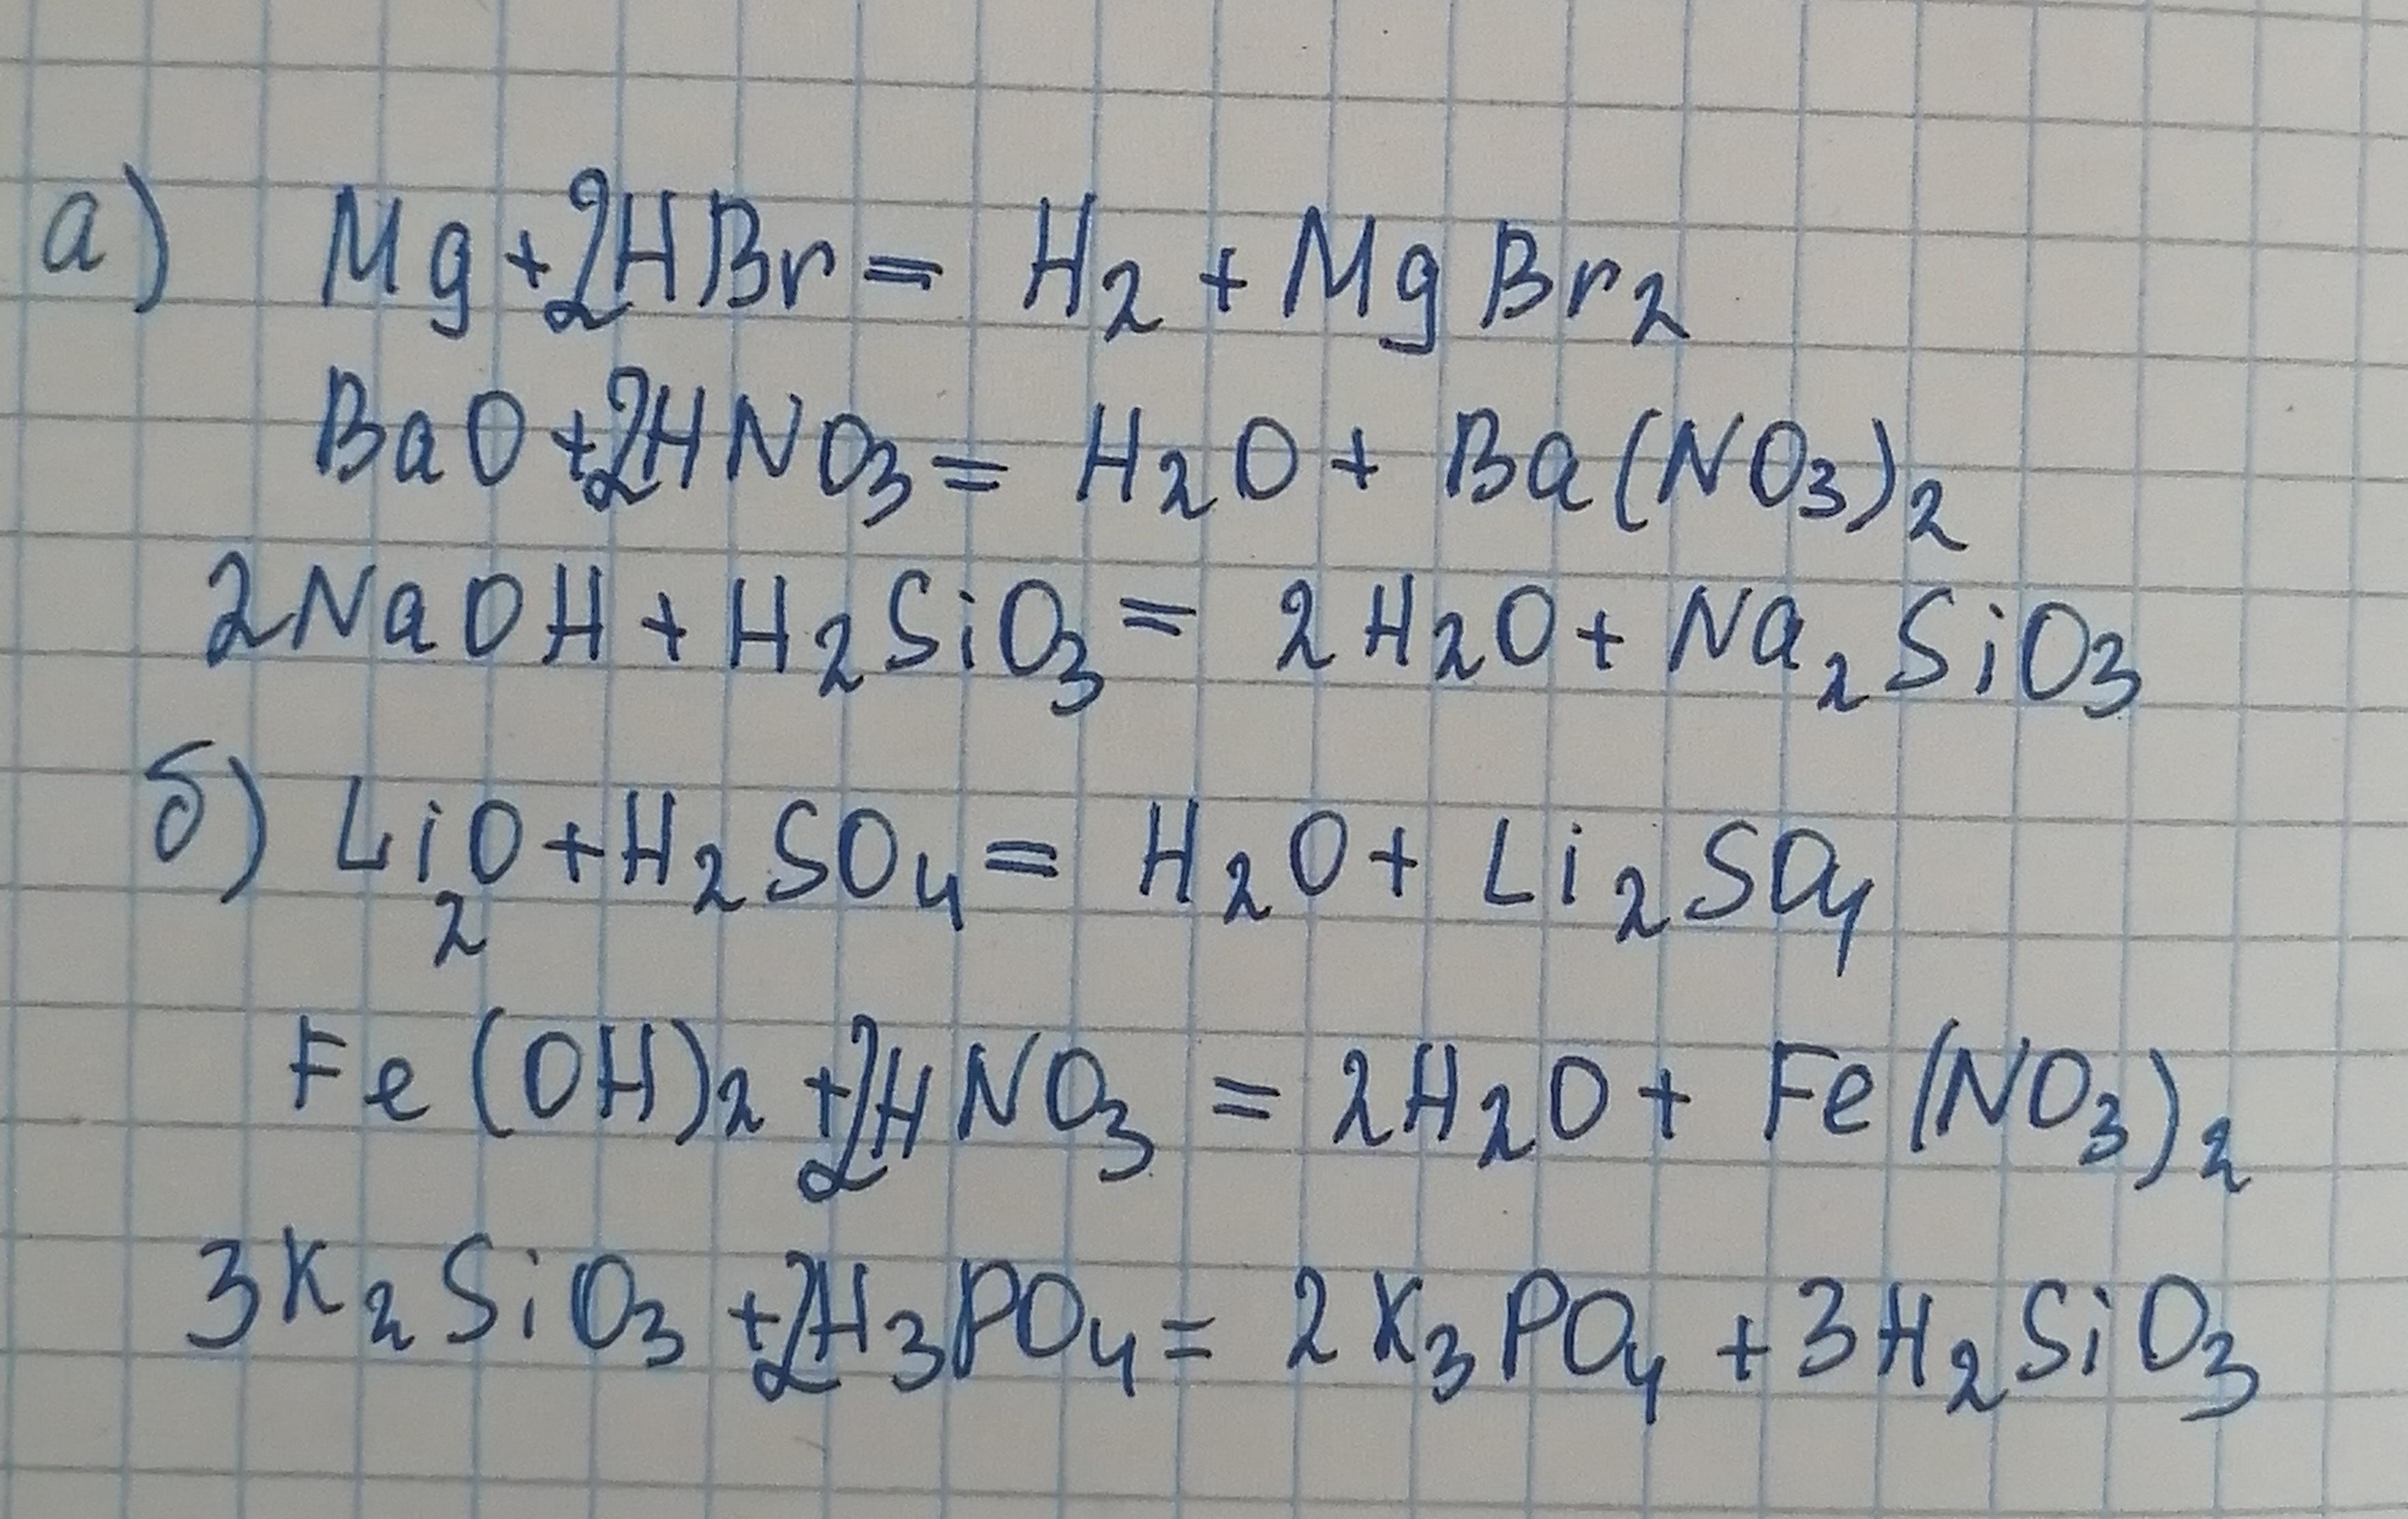 а) Mg+2HBr= H₂ +MgBr₂
BaO+2HNO₃= H₂O+ Ba(NO₃)₂
2NaOH+H₂SiO₃= 2H₂O+Na₂SiO₃
б) Li₂O+H₂SO₄= H₂O+ Li₂SO₄
Fe(OH)₂ +2HNO₃ = 2H₂O+ Fe(NO₃)₂
3K₂SiO₃ +2H₃PO₄= 2K₃PO₄ +3H₂SiO₃